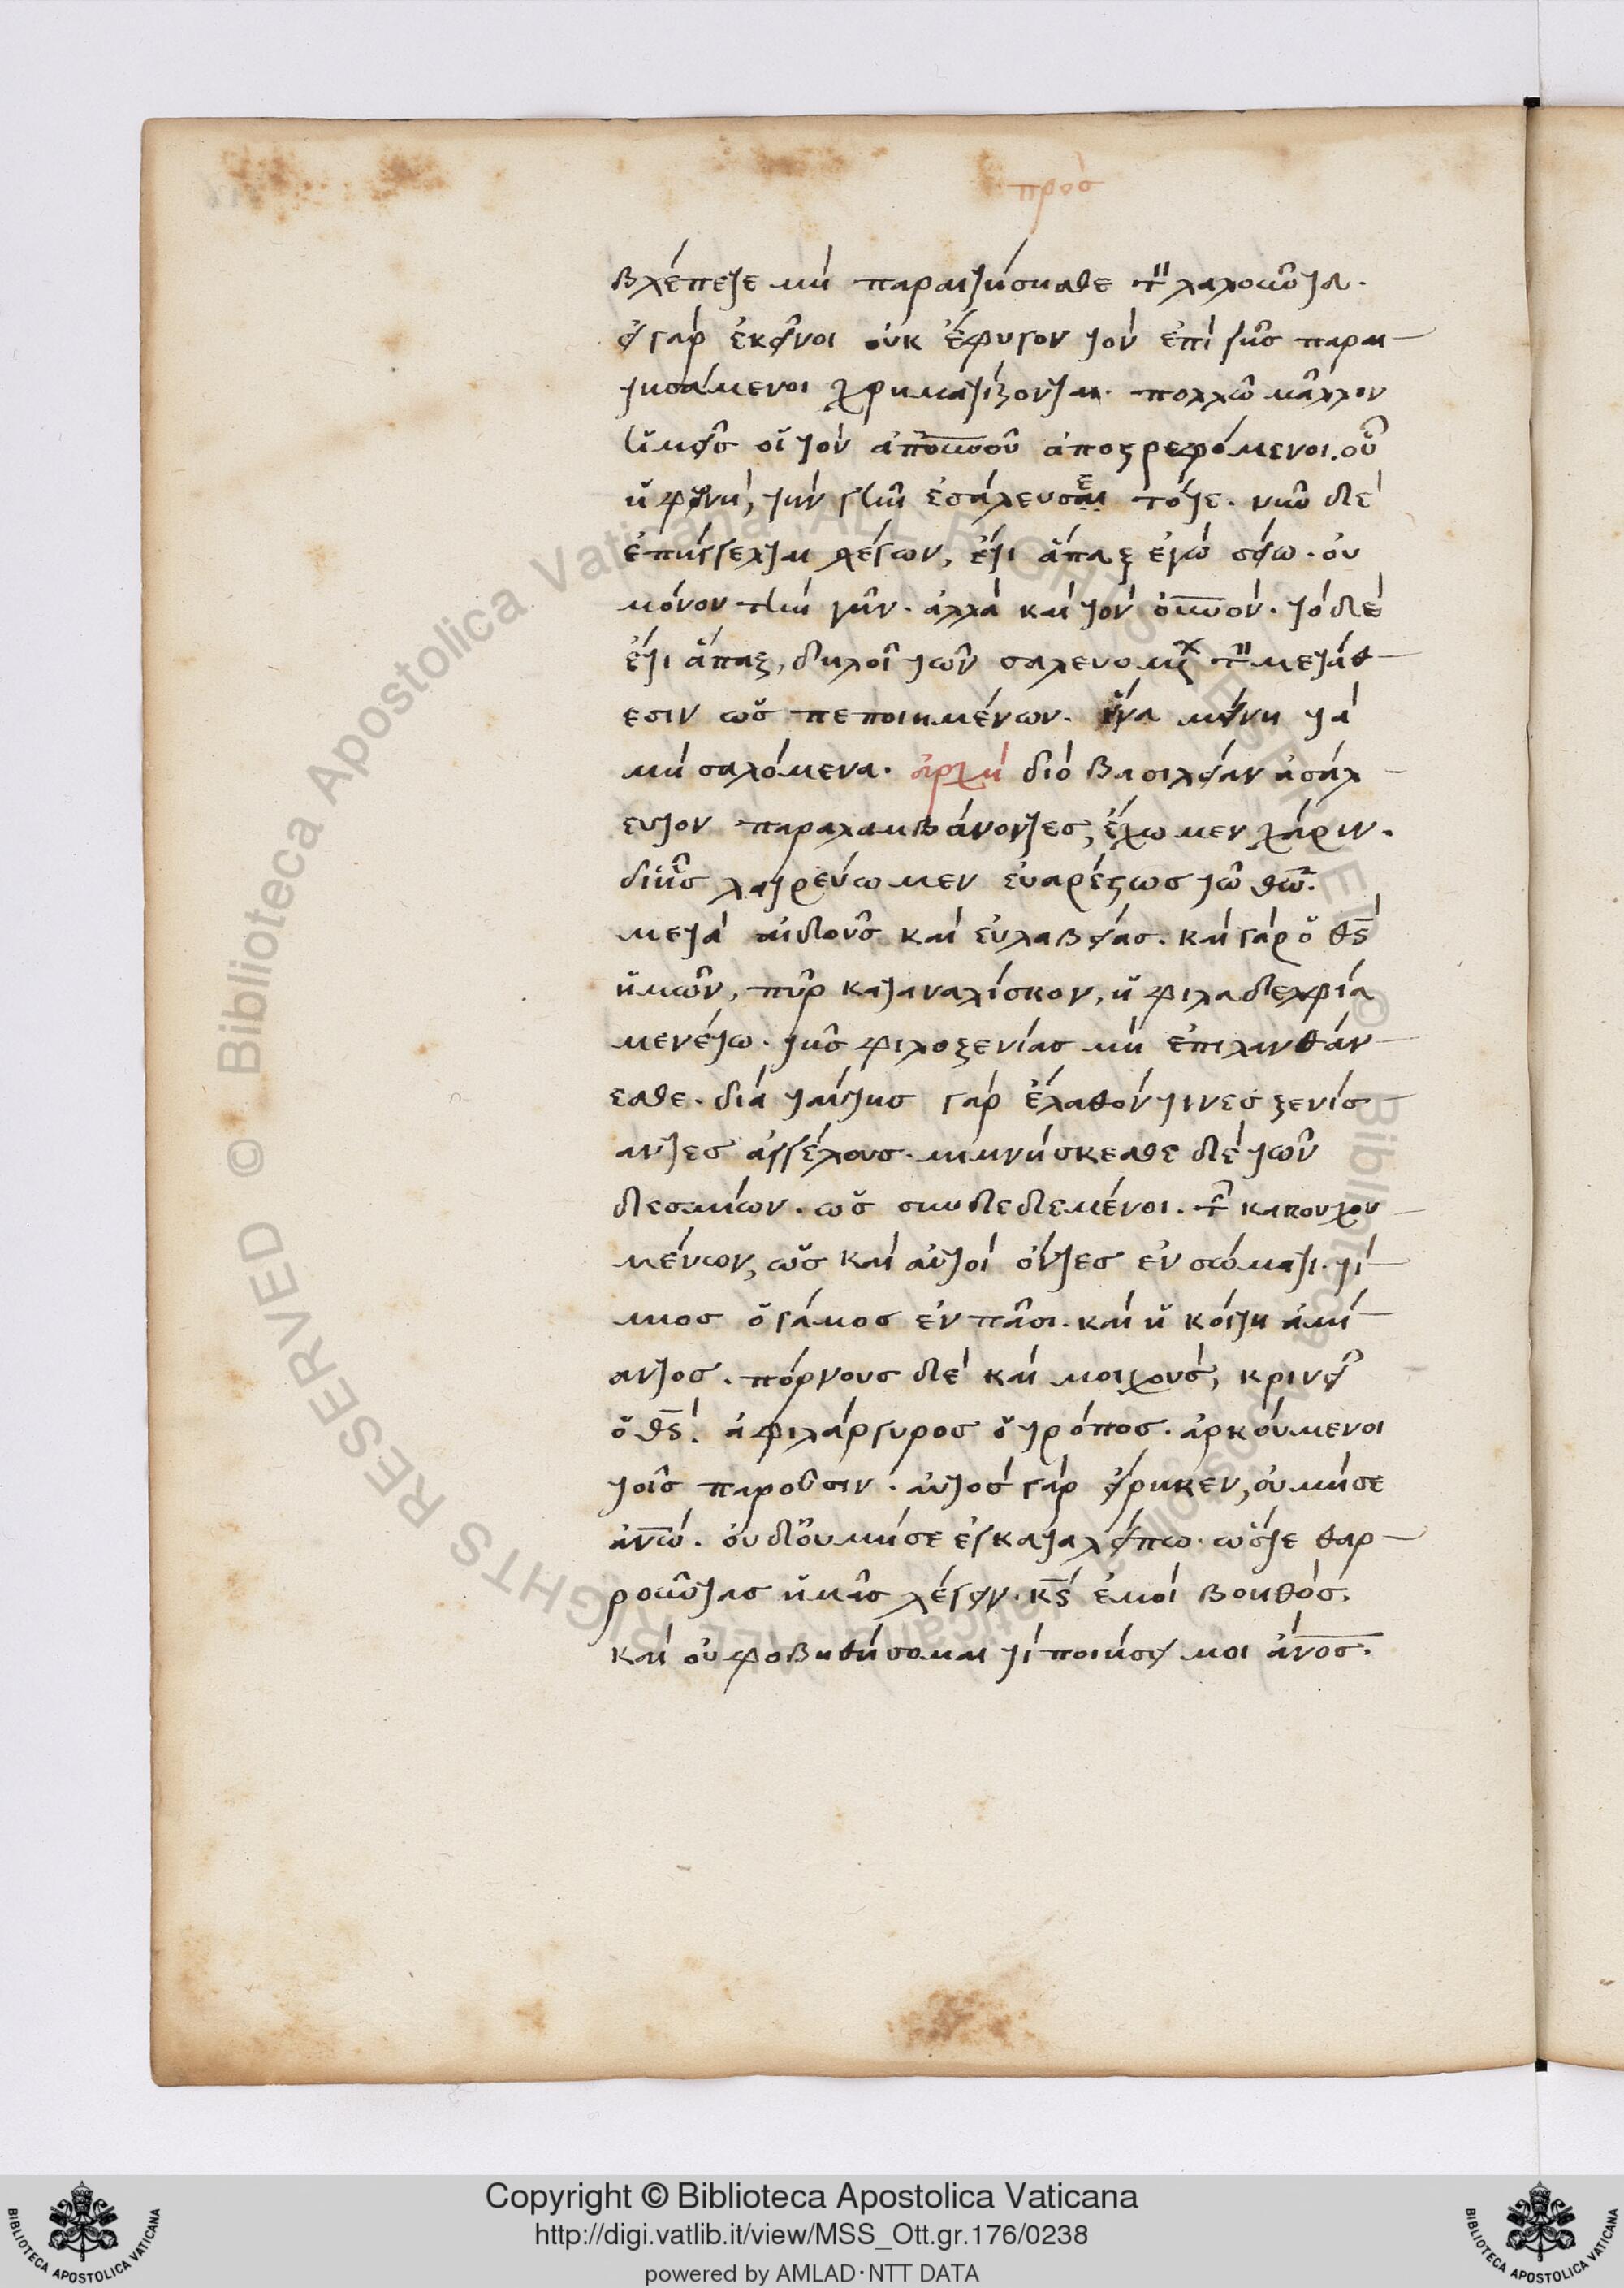 πρὸς
βλέπετε μὴ παραιτήσησθε τὸν λαλοῦντα.
εἰ γὰρ ἐκεῖνοι οὐκ ἔφυγον τὸν ἐπὶ γῆς παραι
τησάμενοι χρηματίζοντα. πολλῶ μᾶλλον
ὑμεῖς οἱ τὸν ἀπ' οὐνοῦ ἀποστρεφόμενοι. οὗ
ἡ φωνὴ, τὴν γῆν ἐσάλευσε τότε. νῦν δὲ
ἐπήγγελται λέγων, ἔτι ἅπαξ ἐγὼ σείω. οὐ
μόνον τὴν γῆν. ἀλλὰ καὶ τὸν οὐνον. τὸ δὲ
ἔτι ἅπαξ, δηλοῖ τῶν σαλευομένων τὴν μετάθ
εσιν ὡς πεποιημένων. ἵνα μείνη τὰ
μὴ σαλόμενα. ἀρχὴ διὸ βασιλείαν ἀσάλ
ευτον παραλαμβάνοντες, ἔχωμεν χάριν.
δι ἧς λατρεύσωμεν εὐαρέστως τῶ θῶ.
μετὰ αἰδοῦς καὶ εὐλαβείας. καὶ γὰρ ὁ θς
ἡμῶν, πῦρ καταναλίσκον, ἡ φιλαδελφία
μενέτω. τῆς φιλοξενίας μὴ ἐπιλανθάν
εσθε. διὰ ταύτης γὰρ ἔλαθόν τινες ξενίσ
αντες ἀγγέλους. μιμνήσκεσθε δὲ τῶν
δεσμίων. ὡς συνδεδεμένοι. τῶν κακουχου
μένων, ὡς καὶ αὐτοὶ ὄντες ἐν σώματι. τί
μιος ὁ γάμος ἐν πᾶσι. καὶ ἡ κοίτη ἀμί
αντος. πόρνους δὲ καὶ μοιχοὺς, κρινεῖ
ὁ θς. ἀφιλάργυρος ὁ τρόπος. ἀρκούμενοι
τοῖς παροῦσιν. αὐτὸς γὰρ εἴρηκεν, οὐ μή σε
ἀνῶ. οὐδ' οὐ μή σε ἐγκαταλείπω. ὥστε θαρ
ροῦντας ἡμᾶς λέγειν. κς ἐμοὶ βοηθός.
καὶ οὐ φοβηθήσομαι τί ποιήσει μοι ἄνος.
© Biblioteca Apostolica Vaticana ALL RIGHTS RESERVED
© Biblioteca Apostolica Vaticana ALL RIGHTS RESERVED
Copyright © Biblioteca Apostolica Vaticana
http://digi.vatlib.it/view/MSS_Ott.gr.176/0238
powered by AMLAD·NTT DATA
BIBLIOTECA APOSTOLICA VATICANA
BIBLIOTECA APOSTOLICA VATICANA